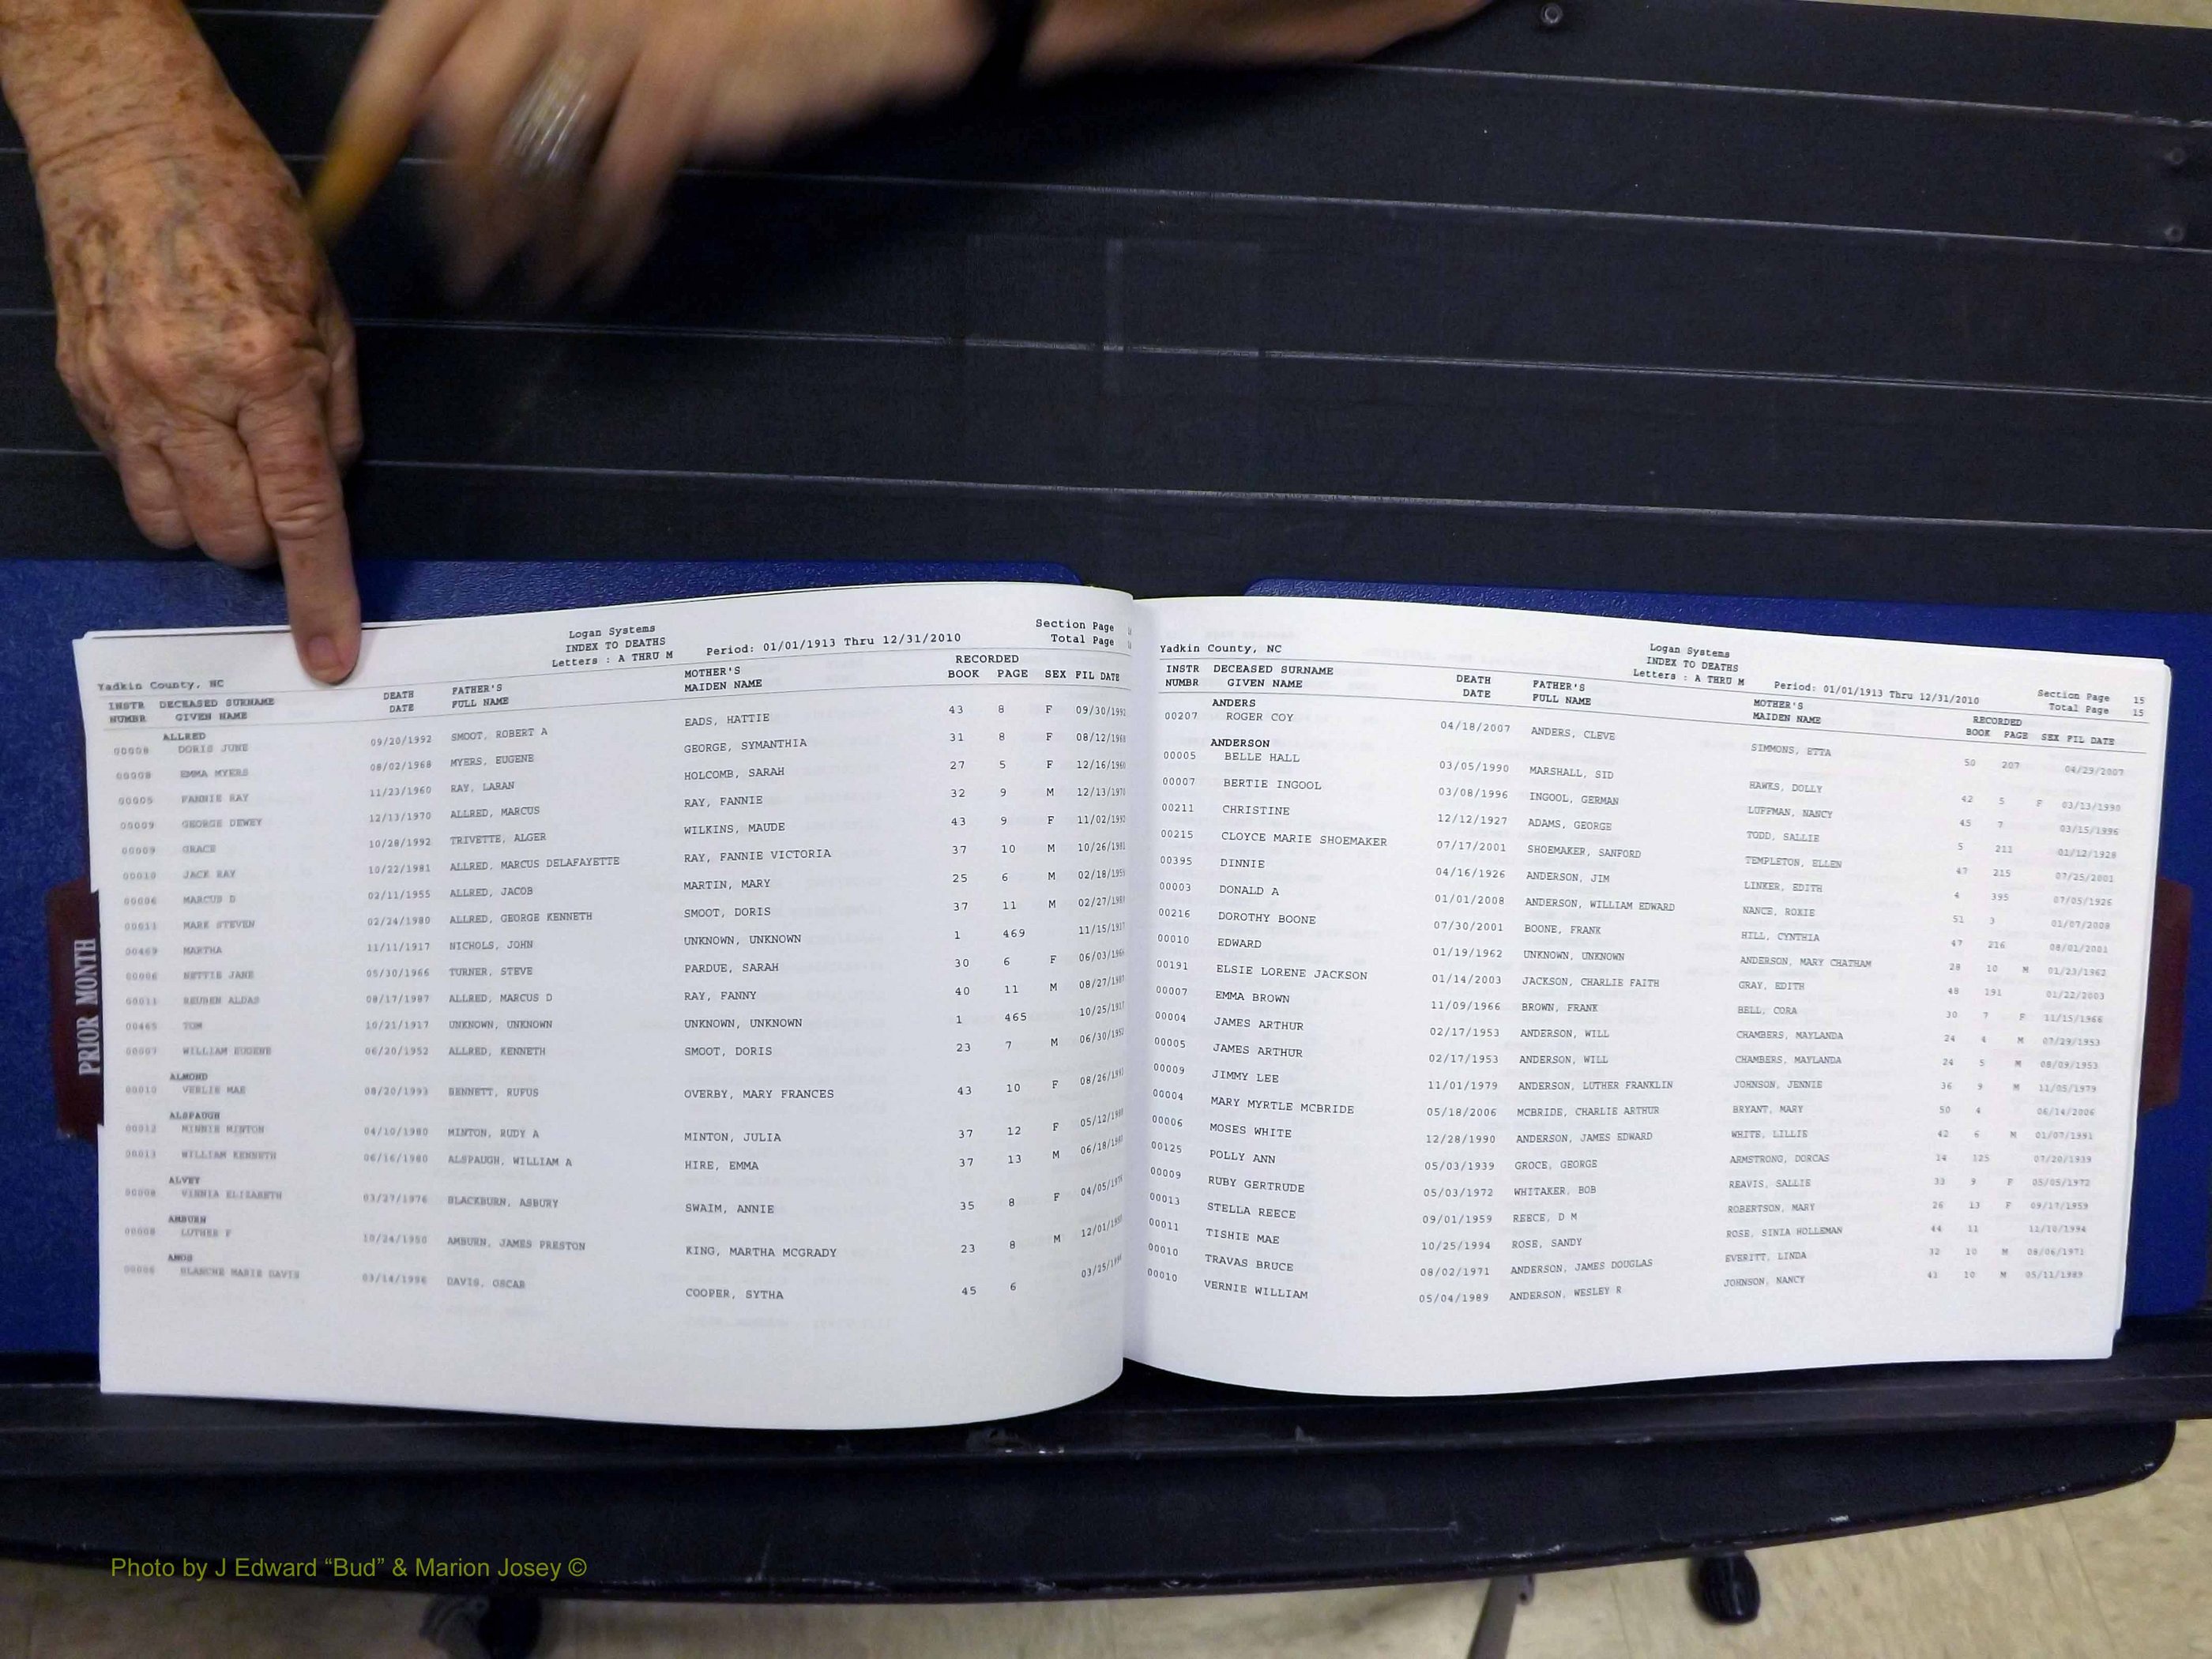 PRIOR MONTH
Yadkin County, NC
Logan Systems
INDEX TO DEATHS
Letters : A THRU M
Period: 01/01/1913 Thru 12/31/2010
Section Page
Total Page
INSTR DECEASED SURNAME DEATH FATHER'S MOTHER'S RECORDED
NUMBR GIVEN NAME DATE FULL NAME MAIDEN NAME BOOK PAGE SEX FIL DATE
ALLRED
00008 DORIS JUNE 09/20/1992 SMOOT, ROBERT A EADS, HATTIE 43 8 F 09/30/1992
00008 EMMA MYERS 08/02/1968 MYERS, EUGENE GEORGE, SYMANTHIA 31 8 F 08/12/1968
00005 FANNIE RAY 11/23/1960 RAY, LARAN HOLCOMB, SARAH 27 5 F 12/16/1960
00009 GEORGE DEWEY 12/13/1970 ALLRED, MARCUS RAY, FANNIE 32 9 M 12/13/1970
00009 GRACE 10/28/1992 TRIVETTE, ALGER WILKINS, MAUDE 43 9 F 11/02/1992
00010 JACK RAY 10/22/1981 ALLRED, MARCUS DELAFAYETTE RAY, FANNIE VICTORIA 37 10 M 10/26/1981
00006 MARCUS D 02/11/1955 ALLRED, JACOB MARTIN, MARY 25 6 M
00011 MARK STEVEN 02/24/1980 ALLRED, GEORGE KENNETH SMOOT, DORIS 37 11 M
00469 MARTHA 11/11/1917 NICHOLS, JOHN UNKNOWN, UNKNOWN 1 469 11/15/1917
00006 NETTIE JANE 05/30/1966 TURNER, STEVE PARDUE, SARAH 30 6 F 06/03/1966
00011 REUBEN ALDAS 08/17/1987 ALLRED, MARCUS D RAY, FANNY 40 11 M 08/27/1987
00465 TOM 10/21/1917 UNKNOWN, UNKNOWN UNKNOWN, UNKNOWN 1 465 10/25/1917
00007 WILLIAM EUGENE 06/20/1952 ALLRED, KENNETH SMOOT, DORIS 23 7 M 06/30/1952
ALMOND
00010 VERLIE MAE 08/20/1993 BENNETT, RUFUS OVERBY, MARY FRANCES 43 10 F 08/26/1993
ALSPAUGH
00012 MINNIE MINTON 04/10/1980 MINTON, RUDY A MINTON, JULIA 37 12 F 05/12/1980
00013 WILLIAM KENNETH 06/16/1980 ALSPAUGH, WILLIAM A HIRE, EMMA 37 13 M 06/18/1980
ALVEY
00008 VINNIA ELIZABETH 03/27/1976 BLACKBURN, ASBURY SWAIM, ANNIE 35 8 F 04/05/1976
AMBURN
00008 LUTHER F 10/24/1950 AMBURN, JAMES PRESTON KING, MARTHA MCGRADY 23 8 M 12/01/1950
AMOS
00006 BLANCHE MARIE DAVIS 03/14/1996 DAVIS, OSCAR COOPER, SYTHA 45 6 03/25/1996
Yadkin County, NC
Logan Systems
INDEX TO DEATHS
Letters : A THRU M
Period: 01/01/1913 Thru 12/31/2010
Section Page 15
Total Page 15
INSTR DECEASED SURNAME DEATH FATHER'S MOTHER'S RECORDED
NUMBR GIVEN NAME DATE FULL NAME MAIDEN NAME BOOK PAGE SEX FIL DATE
ANDERS
00207 ROGER COY 04/18/2007 ANDERS, CLEVE SIMMONS, ETTA 50 207 04/29/2007
ANDERSON
00005 BELLE HALL 03/05/1990 MARSHALL, SID HAWKS, DOLLY 42 5 F 03/13/1990
00007 BERTIE INGOOL 03/08/1996 INGOOL, GERMAN LUFFMAN, NANCY 45 7 03/15/1996
00211 CHRISTINE 12/12/1927 ADAMS, GEORGE TODD, SALLIE 5 211 01/12/1928
00215 CLOYCE MARIE SHOEMAKER 07/17/2001 SHOEMAKER, SANFORD TEMPLETON, ELLEN 47 215 07/25/2001
00395 DINNIE 04/16/1926 ANDERSON, JIM LINKER, EDITH 4 395 07/05/1926
00003 DONALD A 01/01/2008 ANDERSON, WILLIAM EDWARD NANCE, ROXIE 51 3 01/07/2008
00216 DOROTHY BOONE 07/30/2001 BOONE, FRANK HILL, CYNTHIA 47 216 08/01/2001
00010 EDWARD 01/19/1962 UNKNOWN, UNKNOWN ANDERSON, MARY CHATHAM 28 10 M 01/23/1962
00191 ELSIE LORENE JACKSON 01/14/2003 JACKSON, CHARLIE FAITH GRAY, EDITH 48 191 01/22/2003
00007 EMMA BROWN 11/09/1966 BROWN, FRANK BELL, CORA 30 7 F 11/15/1966
00004 JAMES ARTHUR 02/17/1953 ANDERSON, WILL CHAMBERS, MAYLANDA 24 4 M 07/29/1953
00005 JAMES ARTHUR 02/17/1953 ANDERSON, WILL CHAMBERS, MAYLANDA 24 5 M 08/09/1953
00009 JIMMY LEE 11/01/1979 ANDERSON, LUTHER FRANKLIN JOHNSON, JENNIE 36 9 M 11/05/1979
00004 MARY MYRTLE MCBRIDE 05/18/2006 MCBRIDE, CHARLIE ARTHUR BRYANT, MARY 50 4 06/14/2006
00006 MOSES WHITE 12/28/1990 ANDERSON, JAMES EDWARD WHITE, LILLIE 42 6 M 01/07/1991
00125 POLLY ANN 05/03/1939 GROCE, GEORGE ARMSTRONG, DORCAS 14 125 07/20/1939
00009 RUBY GERTRUDE 05/03/1972 WHITAKER, BOB REAVIS, SALLIE 33 9 F 05/05/1972
00013 STELLA REECE 09/01/1959 REECE, D M ROBERTSON, MARY 26 13 F 09/17/1959
00011 TISHIE MAE 10/25/1994 ROSE, SANDY ROSE, SINIA HOLLEMAN 44 11 11/10/1994
00010 TRAVAS BRUCE 08/02/1971 ANDERSON, JAMES DOUGLAS EVERITT, LINDA 32 10 M 08/06/1971
00010 VERNIE WILLIAM 05/04/1989 ANDERSON, WESLEY R JOHNSON, NANCY 41 10 M 05/11/1989
Photo by J Edward “Bud” & Marion Josey ©